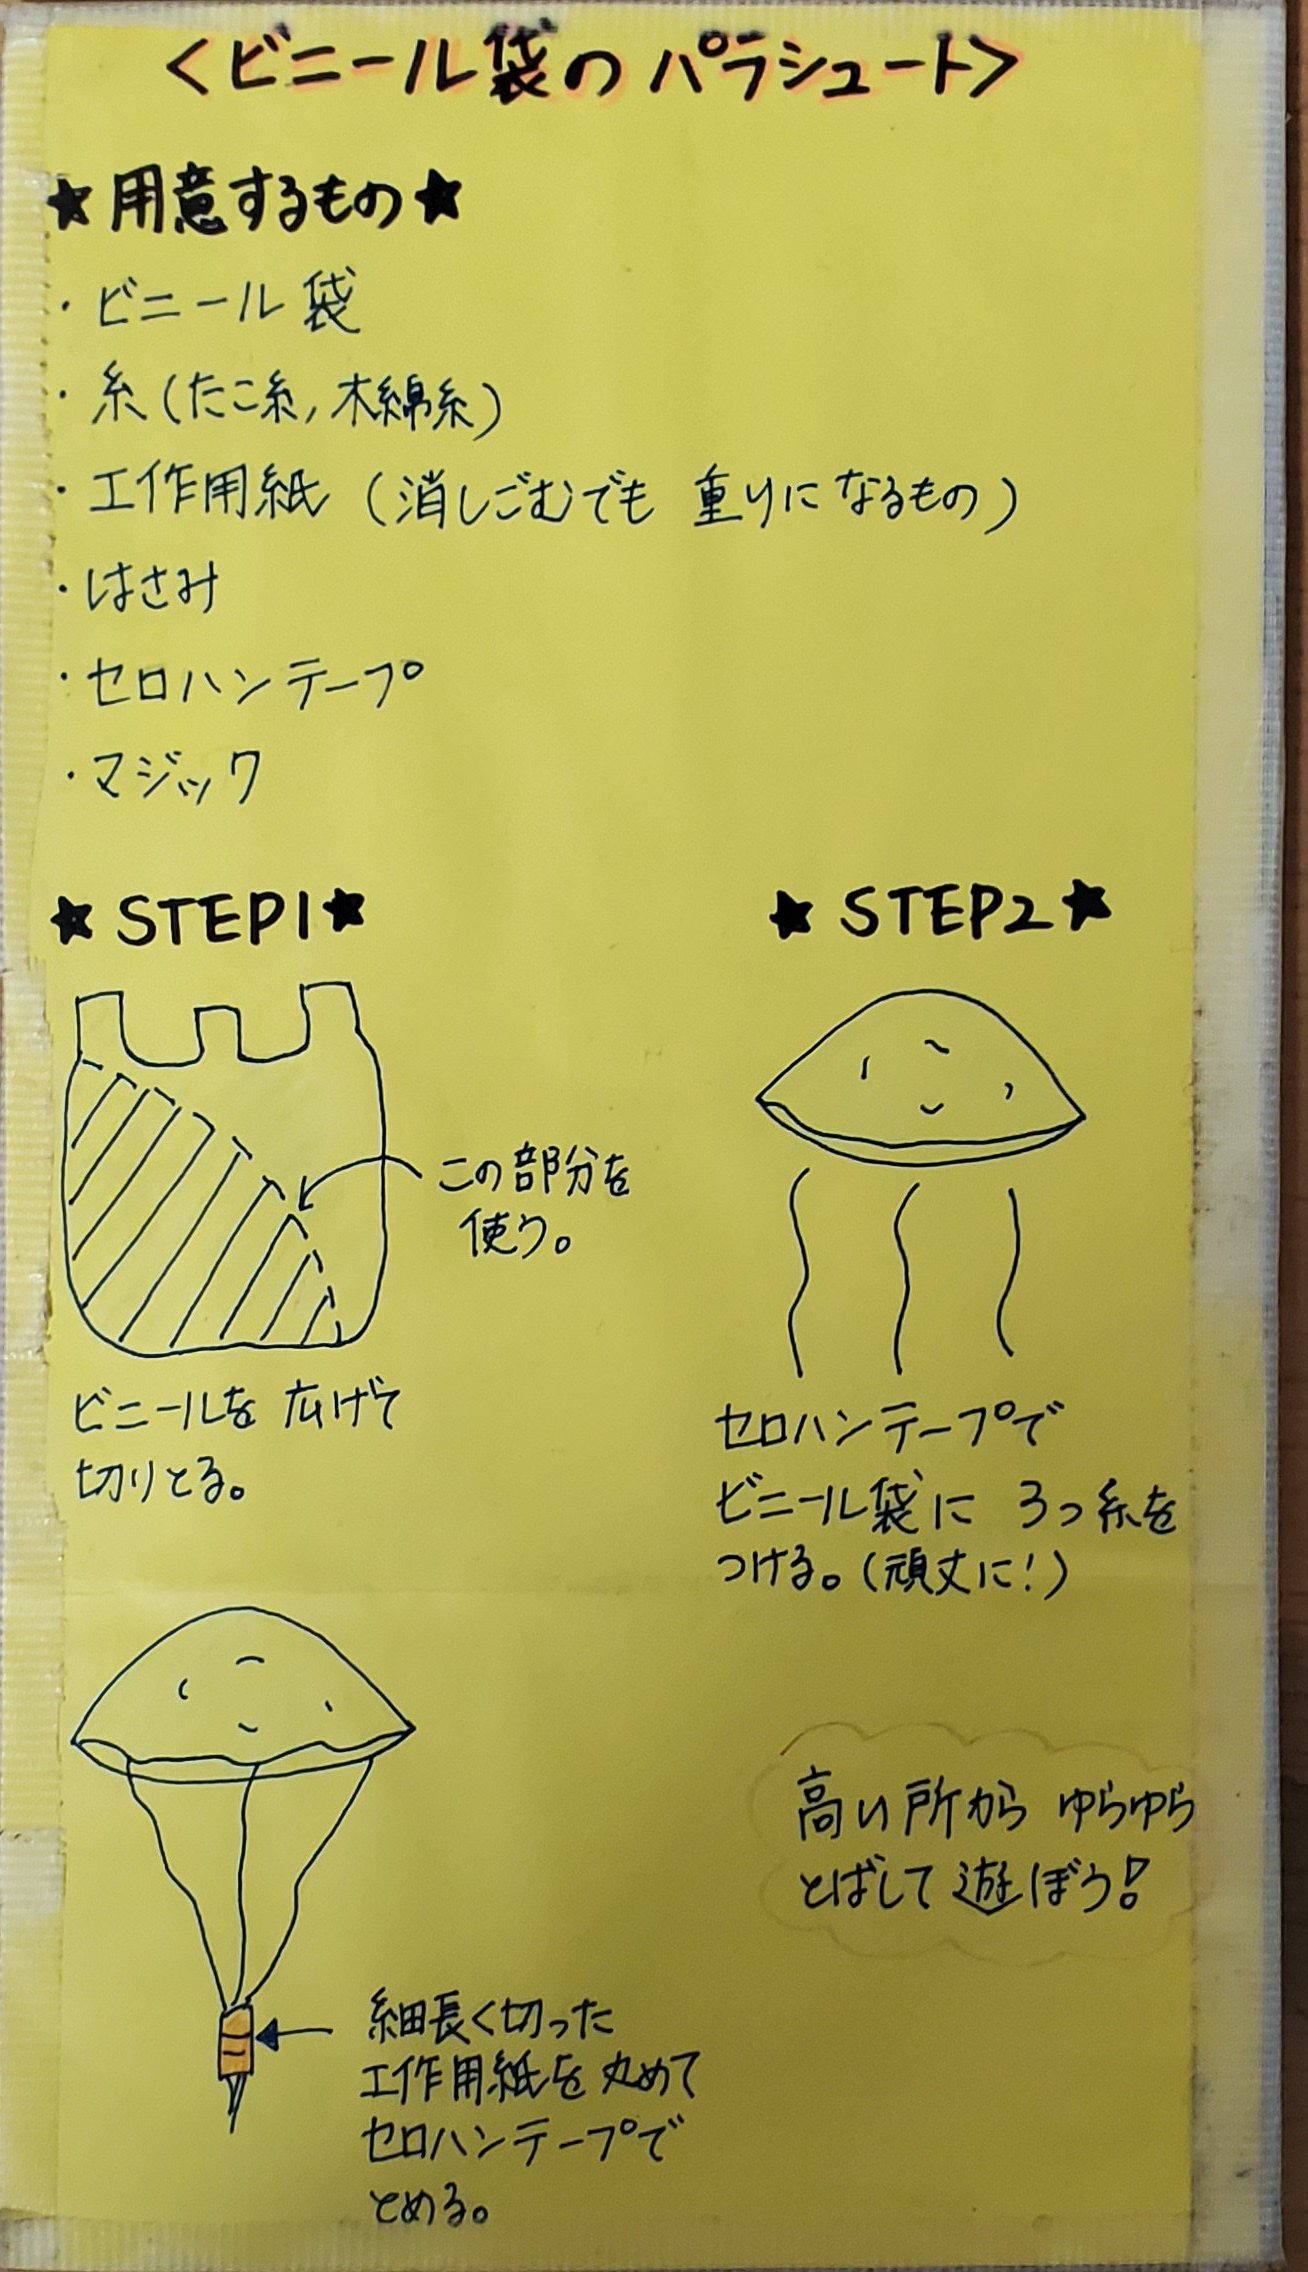 <ビニール袋のパラシュート>
★用意するもの★
・ビニール袋
・糸(たこ糸,木綿糸)
・工作用紙(消しごむでも 重りになるもの)
・はさみ
・セロハンテープ
・マジック
★STEP1★
この部分を
使う。
ビニールを広げて
切りとる。
★STEP2★
セロハンテープで
ビニール袋に 3つ糸を
つける。(頑丈に!)
細長く切った
工作用紙を丸めて
セロハンテープで
とめる。
高い所から ゆらゆら
とばして遊ぼう!